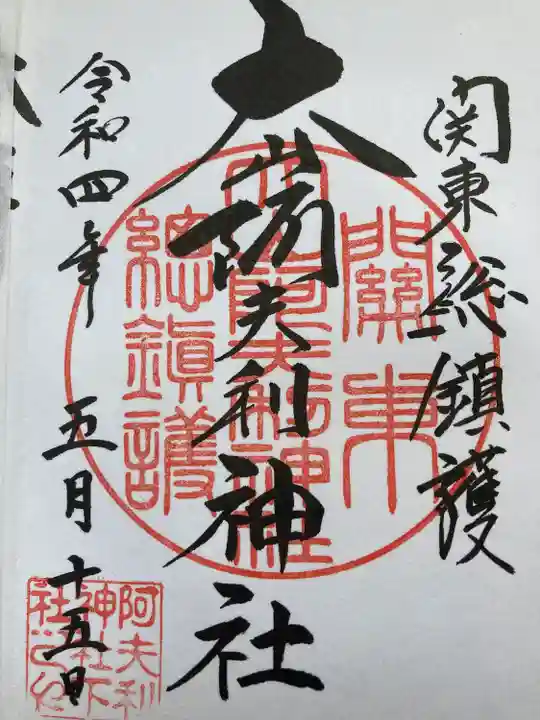 関東総鎮護
大山阿夫利神社
令和四年 五月 十五日
關東
大山阿夫利神社
総鎮護
阿夫利
神社下
社